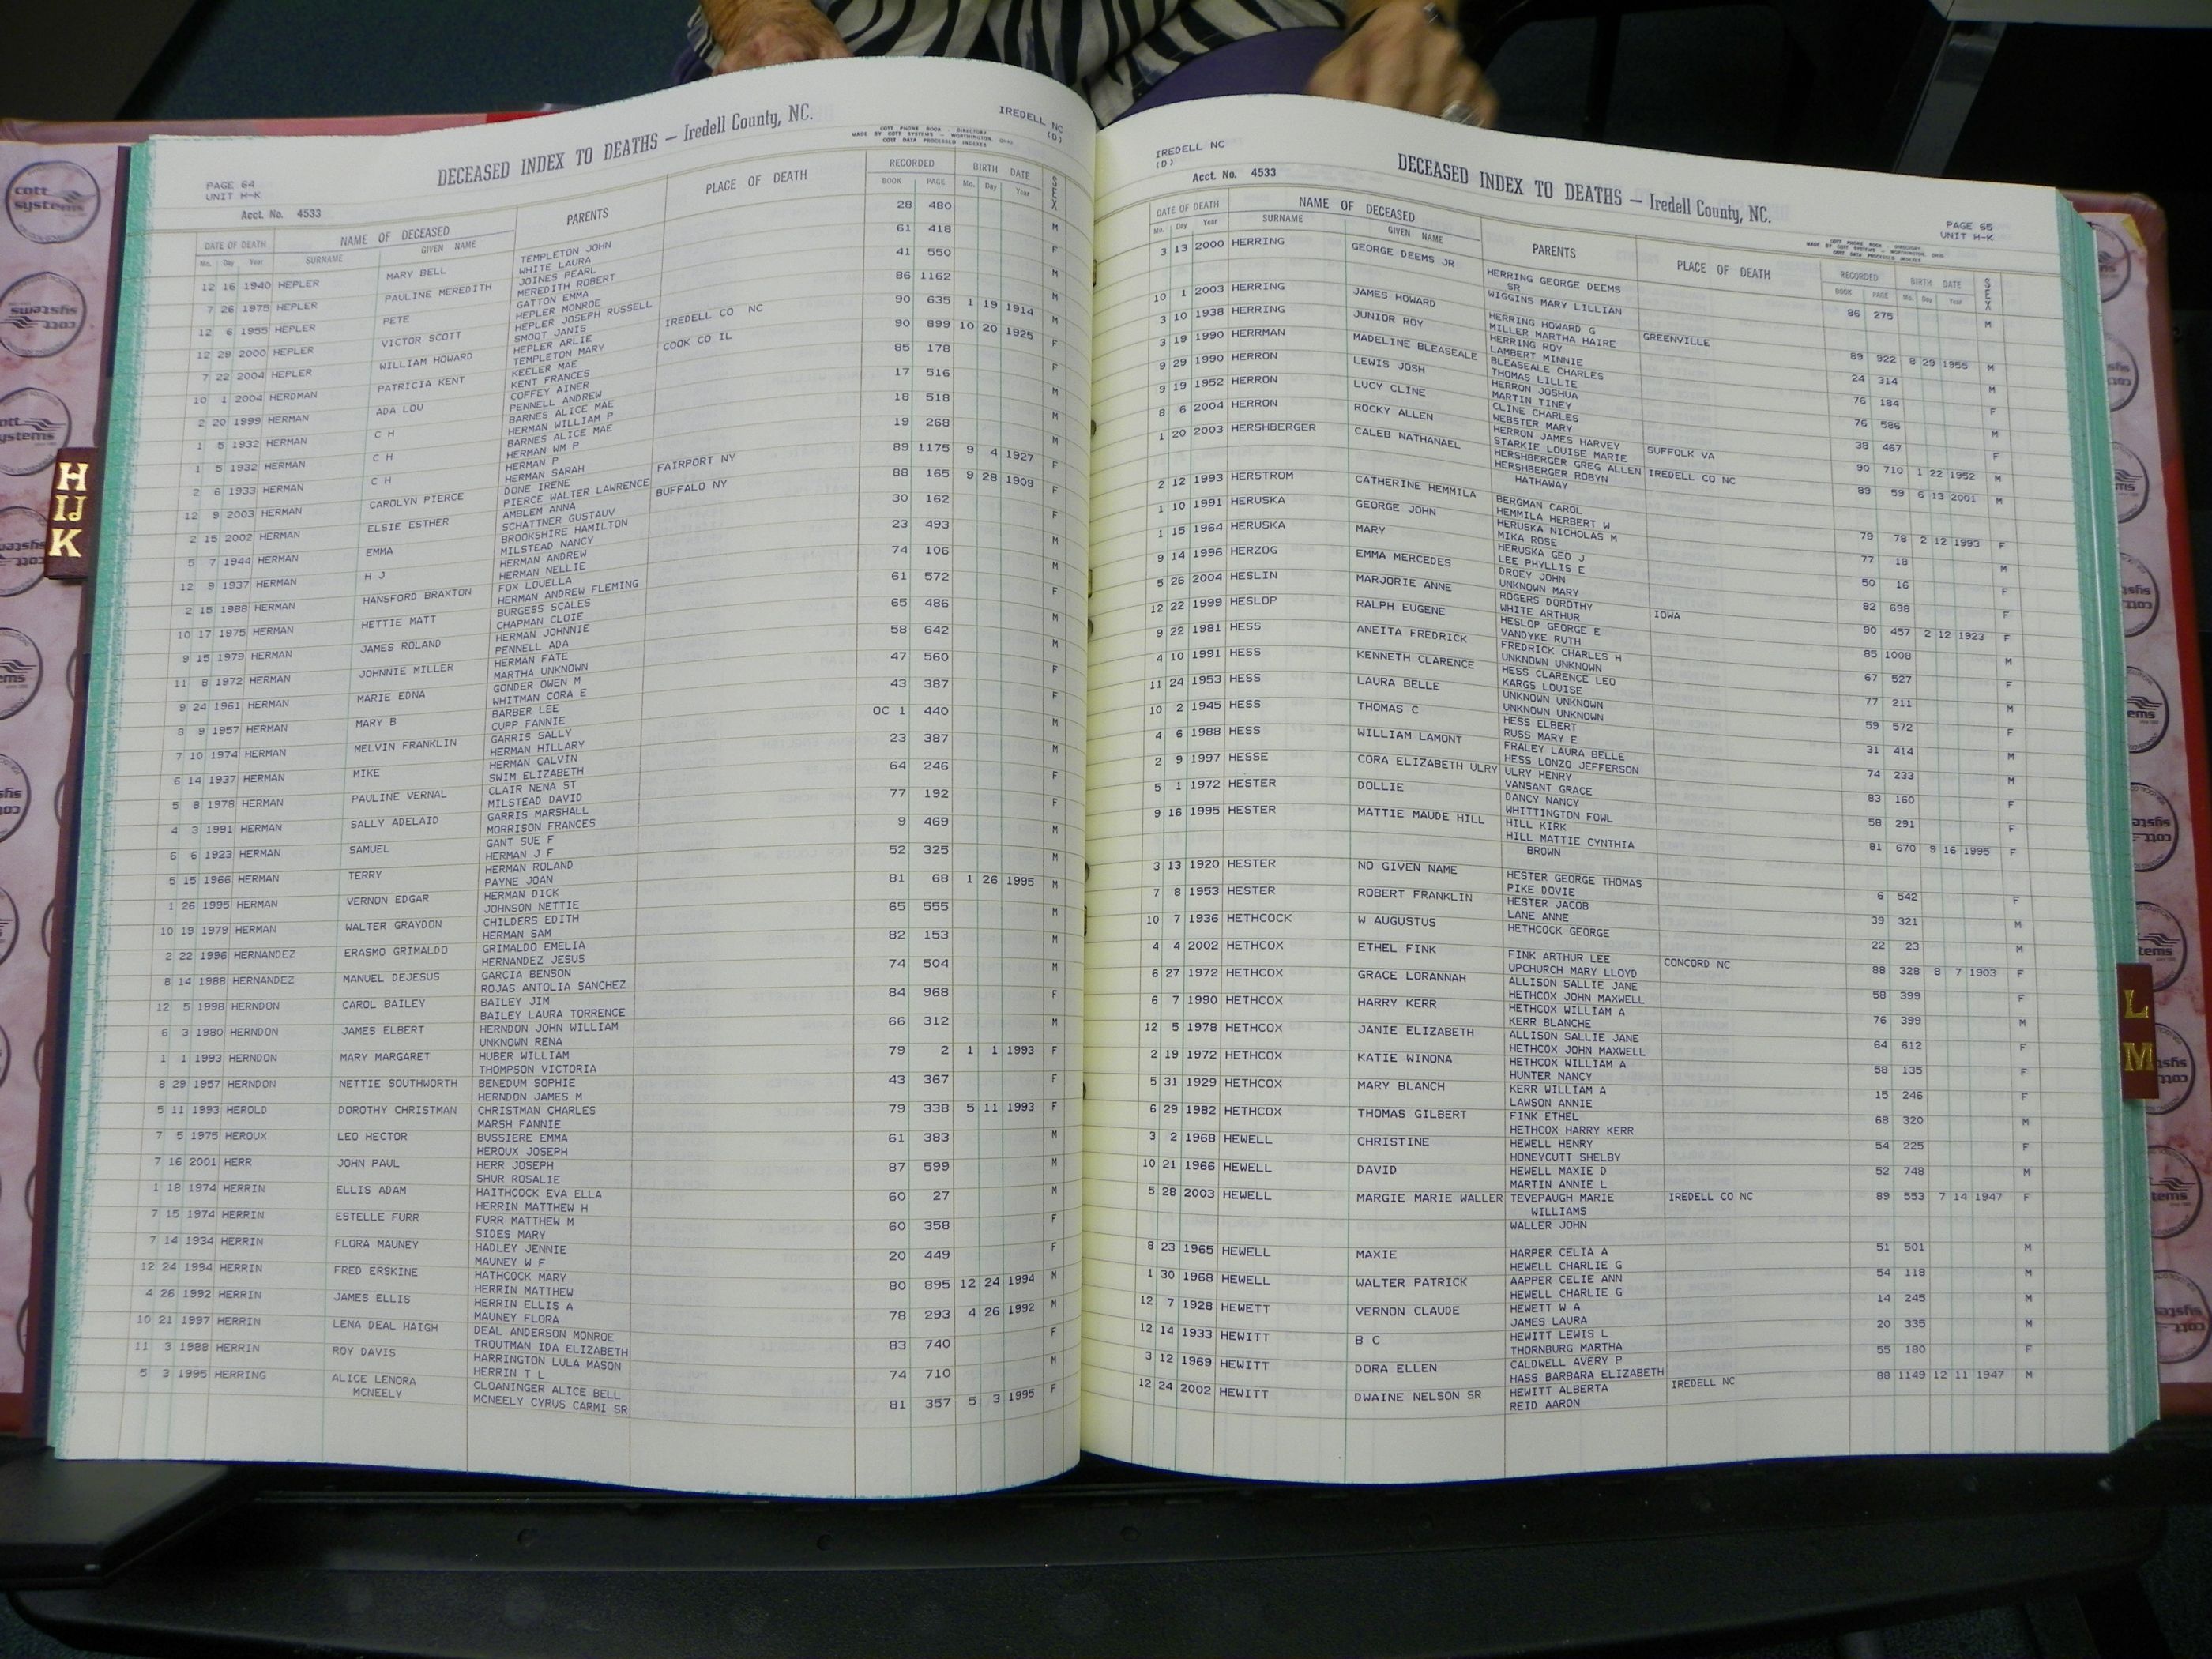 IREDELL NC
(D)
DECEASED INDEX TO DEATHS — Iredell County, NC.
COTT PHONE BOOK - DIRECTORY
MADE BY COTT SYSTEMS — WORTHINGTON, OHIO
COTT DATA PROCESSED INDEXES
PAGE 64
UNIT H-K
Acct. No. 4533
DATE OF DEATH NAME OF DECEASED PARENTS PLACE OF DEATH RECORDED BIRTH DATE SEX
Mo. Day Year SURNAME GIVEN NAME BOOK PAGE Mo. Day Year
12 16 1940 HEPLER MARY BELL TEMPLETON JOHN 28 480 M
WHITE LAURA
7 26 1975 HEPLER PAULINE MEREDITH JOINES PEARL 61 418 F
MEREDITH ROBERT
12 6 1955 HEPLER PETE GATTON EMMA 41 550 M
HEPLER MONROE
12 29 2000 HEPLER VICTOR SCOTT HEPLER JOSEPH RUSSELL 86 1162 M
SMOOT JANIS
7 22 2004 HEPLER WILLIAM HOWARD HEPLER ARLIE IREDELL CO NC 90 635 1 19 1914 M
TEMPLETON MARY
10 1 2004 HERDMAN PATRICIA KENT KEELER MAE COOK CO IL 90 899 10 20 1925 F
KENT FRANCES
2 20 1999 HERMAN ADA LOU COFFEY AINER 85 178 F
PENNELL ANDREW
1 5 1932 HERMAN C H BARNES ALICE MAE 17 516 M
HERMAN WILLIAM P
1 5 1932 HERMAN C H BARNES ALICE MAE 18 518 M
HERMAN WM P
2 6 1933 HERMAN C H HERMAN P 19 268 M
HERMAN SARAH
12 9 2003 HERMAN CAROLYN PIERCE DONE IRENE FAIRPORT NY 89 1175 9 4 1927 F
PIERCE WALTER LAWRENCE
2 15 2002 HERMAN ELSIE ESTHER AMBLEM ANNA BUFFALO NY 88 165 9 28 1909 F
SCHATTNER GUSTAUV
5 7 1944 HERMAN EMMA BROOKSHIRE HAMILTON 30 162 F
MILSTEAD NANCY
12 9 1937 HERMAN H J HERMAN ANDREW 23 493 M
HERMAN NELLIE
2 15 1988 HERMAN HANSFORD BRAXTON FOX LOUELLA 74 106 M
HERMAN ANDREW FLEMING
10 17 1975 HERMAN HETTIE MATT BURGESS SCALES 61 572 F
CHAPMAN CLOIE
9 15 1979 HERMAN JAMES ROLAND HERMAN JOHNNIE 65 486 M
PENNELL ADA
11 8 1972 HERMAN JOHNNIE MILLER HERMAN FATE 58 642 M
MARTHA UNKNOWN
9 24 1961 HERMAN MARIE EDNA GONDER OWEN M 47 560 F
WHITMAN CORA E
8 9 1957 HERMAN MARY B BARBER LEE 43 387 F
CUPP FANNIE
7 10 1974 HERMAN MELVIN FRANKLIN GARRIS SALLY OC 1 440 M
HERMAN HILLARY
6 14 1937 HERMAN MIKE HERMAN CALVIN 23 387 M
SWIM ELIZABETH
5 8 1978 HERMAN PAULINE VERNAL CLAIR NENA ST 64 246 F
MILSTEAD DAVID
4 3 1991 HERMAN SALLY ADELAID GARRIS MARSHALL 77 192 F
MORRISON FRANCES
6 6 1923 HERMAN SAMUEL GANT SUE F 9 469 M
HERMAN J F
5 15 1966 HERMAN TERRY HERMAN ROLAND 52 325 M
PAYNE JOAN
1 26 1995 HERMAN VERNON EDGAR HERMAN DICK 81 68 1 26 1995 M
JOHNSON NETTIE
10 19 1979 HERMAN WALTER GRAYDON CHILDERS EDITH 65 555 M
HERMAN SAM
2 22 1996 HERNANDEZ ERASMO GRIMALDO GRIMALDO EMELIA 82 153 M
HERNANDEZ JESUS
8 14 1988 HERNANDEZ MANUEL DEJESUS GARCIA BENSON 74 504 M
ROJAS ANTOLIA SANCHEZ
12 5 1998 HERNDON CAROL BAILEY BAILEY JIM 84 968 F
BAILEY LAURA TORRENCE
6 3 1980 HERNDON JAMES ELBERT HERNDON JOHN WILLIAM 66 312 M
UNKNOWN RENA
1 1 1993 HERNDON MARY MARGARET HUBER WILLIAM 79 2 1 1 1993 F
THOMPSON VICTORIA
8 29 1957 HERNDON NETTIE SOUTHWORTH BENEDUM SOPHIE 43 367 F
HERNDON JAMES M
5 11 1993 HEROLD DOROTHY CHRISTMAN CHRISTMAN CHARLES 79 338 5 11 1993 F
MARSH FANNIE
7 5 1975 HEROUX LEO HECTOR BUSSIERE EMMA 61 383 M
HEROUX JOSEPH
7 16 2001 HERR JOHN PAUL HERR JOSEPH 87 599 M
SHUR ROSALIE
1 18 1974 HERRIN ELLIS ADAM HAITHCOCK EVA ELLA 60 27 M
HERRIN MATTHEW H
7 15 1974 HERRIN ESTELLE FURR FURR MATTHEW M 60 358 F
SIDES MARY
7 14 1934 HERRIN FLORA MAUNEY HADLEY JENNIE 20 449 F
MAUNEY W F
12 24 1994 HERRIN FRED ERSKINE HATHCOCK MARY 80 895 12 24 1994 M
HERRIN MATTHEW
4 26 1992 HERRIN JAMES ELLIS HERRIN ELLIS A 78 293 4 26 1992 M
MAUNEY FLORA
10 21 1997 HERRIN LENA DEAL HAIGH DEAL ANDERSON MONROE 83 740 F
TROUTMAN IDA ELIZABETH
11 3 1988 HERRIN ROY DAVIS HARRINGTON LULA MASON 74 710 M
HERRIN T L
5 3 1995 HERRING ALICE LENORA CLOANINGER ALICE BELL 81 357 5 3 1995 F
MCNEELY MCNEELY CYRUS CARMI SR
IREDELL NC
(D)
Acct. No. 4533
DECEASED INDEX TO DEATHS — Iredell County, NC.
PAGE 65
UNIT H-K
COTT PHONE BOOK - DIRECTORY
MADE BY COTT SYSTEMS — WORTHINGTON, OHIO
COTT DATA PROCESSED INDEXES
DATE OF DEATH NAME OF DECEASED PARENTS PLACE OF DEATH RECORDED BIRTH DATE SEX
Mo. Day Year SURNAME GIVEN NAME BOOK PAGE Mo. Day Year
3 13 2000 HERRING GEORGE DEEMS JR HERRING GEORGE DEEMS 86 275 M
SR
WIGGINS MARY LILLIAN
10 1 2003 HERRING JAMES HOWARD HERRING HOWARD G GREENVILLE 89 922 8 29 1955 M
MILLER MARTHA HAIRE
3 10 1938 HERRING JUNIOR ROY HERRING ROY 24 314 M
LAMBERT MINNIE
3 19 1990 HERRMAN MADELINE BLEASEALE BLEASEALE CHARLES 76 184 F
THOMAS LILLIE
9 29 1990 HERRON LEWIS JOSH HERRON JOSHUA 76 586 M
MARTIN TINEY
9 19 1952 HERRON LUCY CLINE CLINE CHARLES 38 467 F
WEBSTER MARY
8 6 2004 HERRON ROCKY ALLEN HERRON JAMES HARVEY SUFFOLK VA 90 710 1 22 1952 M
STARKIE LOUISE MARIE
1 20 2003 HERSHBERGER CALEB NATHANAEL HERSHBERGER GREG ALLEN IREDELL CO NC 89 59 6 13 2001 M
HERSHBERGER ROBYN
HATHAWAY
2 12 1993 HERSTROM CATHERINE HEMMILA BERGMAN CAROL 79 78 2 12 1993 F
HEMMILA HERBERT W
1 10 1991 HERUSKA GEORGE JOHN HERUSKA NICHOLAS M 77 18 M
MIKA ROSE
1 15 1964 HERUSKA MARY HERUSKA GEO J 50 16 F
LEE PHYLLIS E
9 14 1996 HERZOG EMMA MERCEDES DROEY JOHN 82 698 F
UNKNOWN MARY
5 26 2004 HESLIN MARJORIE ANNE ROGERS DOROTHY IOWA 90 457 2 12 1923 F
WHITE ARTHUR
12 22 1999 HESLOP RALPH EUGENE HESLOP GEORGE E 85 1008 M
VANDYKE RUTH
9 22 1981 HESS ANEITA FREDRICK FREDRICK CHARLES H 67 527 F
UNKNOWN UNKNOWN
4 10 1991 HESS KENNETH CLARENCE HESS CLARENCE LEO 77 211 M
KARGS LOUISE
11 24 1953 HESS LAURA BELLE UNKNOWN UNKNOWN 59 572 F
UNKNOWN UNKNOWN
10 2 1945 HESS THOMAS C HESS ELBERT 31 414 M
RUSS MARY E
4 6 1988 HESS WILLIAM LAMONT FRALEY LAURA BELLE 74 233 M
HESS LONZO JEFFERSON
2 9 1997 HESSE CORA ELIZABETH ULRY ULRY HENRY 83 160 F
VANSANT GRACE
5 1 1972 HESTER DOLLIE DANCY NANCY 58 291 F
WHITTINGTON FOWL
9 16 1995 HESTER MATTIE MAUDE HILL HILL KIRK 81 670 9 16 1995 F
HILL MATTIE CYNTHIA
BROWN
3 13 1920 HESTER NO GIVEN NAME HESTER GEORGE THOMAS 6 542 F
PIKE DOVIE
7 8 1953 HESTER ROBERT FRANKLIN HESTER JACOB 39 321 M
LANE ANNE
10 7 1936 HETHCOCK W AUGUSTUS HETHCOCK GEORGE 22 23 M
4 4 2002 HETHCOX ETHEL FINK FINK ARTHUR LEE CONCORD NC 88 328 8 7 1903 F
UPCHURCH MARY LLOYD
6 27 1972 HETHCOX GRACE LORANNAH ALLISON SALLIE JANE 58 399 F
HETHCOX JOHN MAXWELL
6 7 1990 HETHCOX HARRY KERR HETHCOX WILLIAM A 76 399 M
KERR BLANCHE
12 5 1978 HETHCOX JANIE ELIZABETH ALLISON SALLIE JANE 64 612 F
HETHCOX JOHN MAXWELL
2 19 1972 HETHCOX KATIE WINONA HETHCOX WILLIAM A 58 135 F
HUNTER NANCY
5 31 1929 HETHCOX MARY BLANCH KERR WILLIAM A 15 246 F
LAWSON ANNIE
6 29 1982 HETHCOX THOMAS GILBERT FINK ETHEL 68 320 M
HETHCOX HARRY KERR
3 2 1968 HEWELL CHRISTINE HEWELL HENRY 54 225 F
HONEYCUTT SHELBY
10 21 1966 HEWELL DAVID HEWELL MAXIE D 52 748 M
MARTIN ANNIE L
5 28 2003 HEWELL MARGIE MARIE WALLER TEVEPAUGH MARIE IREDELL CO NC 89 553 7 14 1947 F
WILLIAMS
WALLER JOHN
8 23 1965 HEWELL MAXIE HARPER CELIA A 51 501 M
HEWELL CHARLIE G
1 30 1968 HEWELL WALTER PATRICK AAPPER CELIE ANN 54 118 M
HEWELL CHARLIE G
12 7 1928 HEWETT VERNON CLAUDE HEWETT W A 14 245 M
JAMES LAURA
12 14 1933 HEWITT B C HEWITT LEWIS L 20 335 M
THORNBURG MARTHA
3 12 1969 HEWITT DORA ELLEN CALDWELL AVERY P 55 180 F
HASS BARBARA ELIZABETH
12 24 2002 HEWITT DWAINE NELSON SR HEWITT ALBERTA IREDELL NC 88 1149 12 11 1947 M
REID AARON
H
IJ
K
L
M
cott
systems